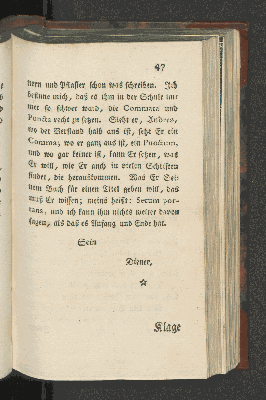 47
nern und Pflaster schon was schreiben. Ich
besinne mich, daß es ihm in der Schule im-
mer so schwer ward, die Commata und
Puncta recht zu setzen. Sieht er, Andres,
wo der Verstand halb aus ist, setzt Er ein
Comma; wo er ganz aus ist, ein Punctum,
und wo gar keiner ist, kann Er setzen, was
Er will, wie Er auch in vielen Schriften
findet, die herauskommen. Was Er Sei-
nem Buch für einen Titel geben will, das
muß Er wissen; meins heißt: Serum par-
cans, und ich kann ihm nichts weiter davon
sagen, als daß es Anfang und Ende hat.
Sein
Diener,
☆
Klage